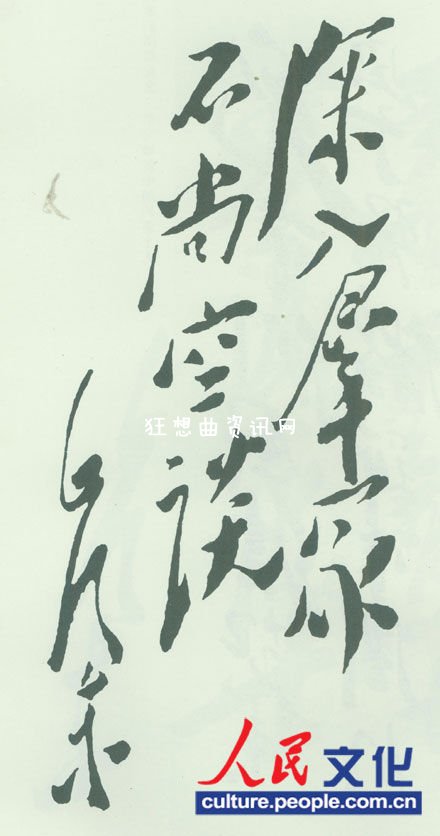 深入羣眾
不尚空談
毛澤東
狂想曲资讯网
人民文化
culture.people.com.cn